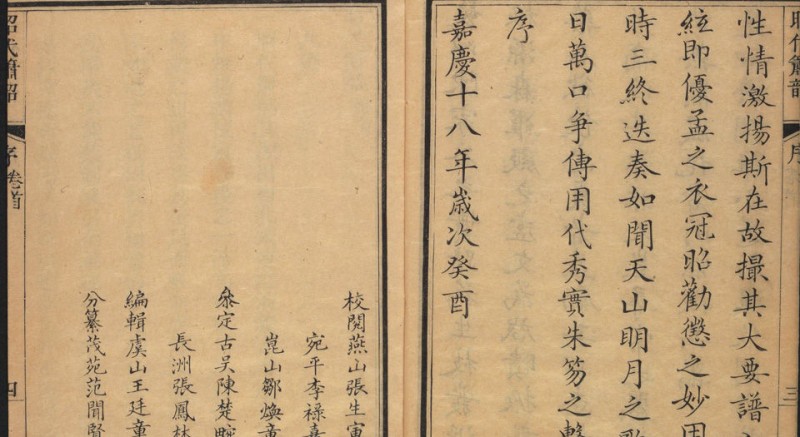 性情激揚斯在故撮其大要譜
絃即優孟之衣冠昭勸懲之妙用
時三終迭奏如聞天山明月之歌
日萬口争傳用代秀實朱笏之擊
序
嘉慶十八年歲次癸酉
校閱燕山張生寅
宛平李祿喜
崑山鄒煥章
叅定古吴陳楚畹
長洲張鳳林
編輯虞山王廷章
分纂茂苑范聞賢
昭代簫韶
序
三
昭代簫韶
序 卷首
四